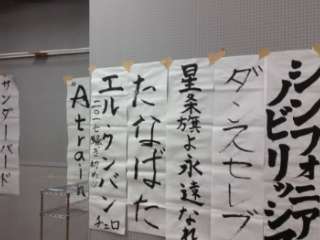 シンフォニア
ノビリッシマ
ダンスセレブ
星条旗よ永遠なれ
たなばた
エル・クンバン
チェロ
A train
サンダーバード